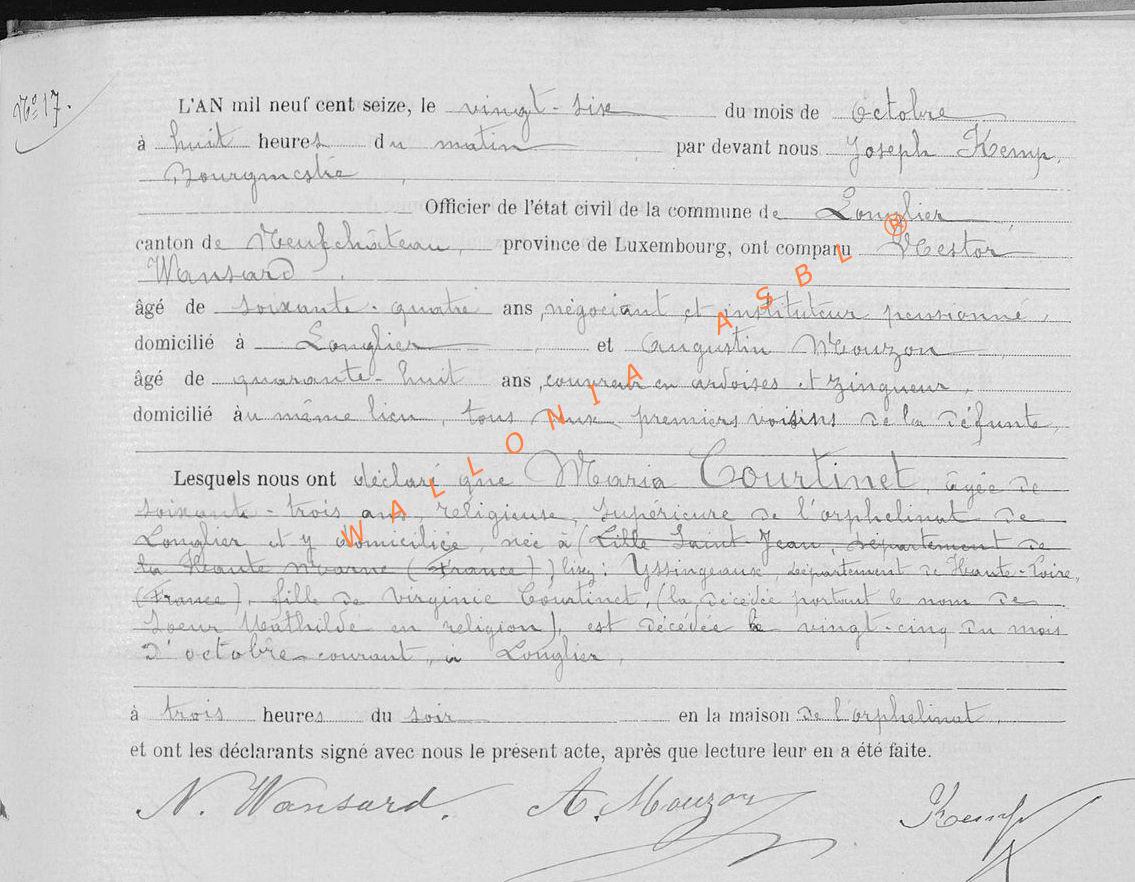 No 17.
L'AN mil neuf cent seize, le vingt-six du mois de Octobre
à huit heures du matin par devant nous Joseph Kemp,
Bourgmestre,
Officier de l'état civil de la commune de Longlier
canton de Neufchâteau, province de Luxembourg, ont comparu Nestor
Wansard,
âgé de soixante-quatre ans, négociant et instituteur pensionné,
domicilié à Longlier et Augustin Mouzon
âgé de quarante-huit ans, couvreur en ardoises et zingueur,
domicilié au même lieu, tous deux premiers voisins de la défunte,
Lesquels nous ont déclaré que Maria Courtinet, âgée de
soixante-trois ans, religieuse, supérieure de l'orphelinat de
Longlier et y domiciliée, née à (Lille Saint-Jean, département de
la Haute Marne (France)) lisez: Yssingeaux, département de Haute-Loire,
(France), fille de Virginie Courtinet, (la décédée portant le nom de
Soeur Mathilde en religion), est décédée le vingt-cinq du mois
d'octobre courant, à Longlier,
à trois heures du soir en la maison de l'orphelinat,
et ont les déclarants signé avec nous le présent acte, après que lecture leur en a été faite.
N. Wansard. A. Mouzon Kemp
WALLONIA ASBL ®